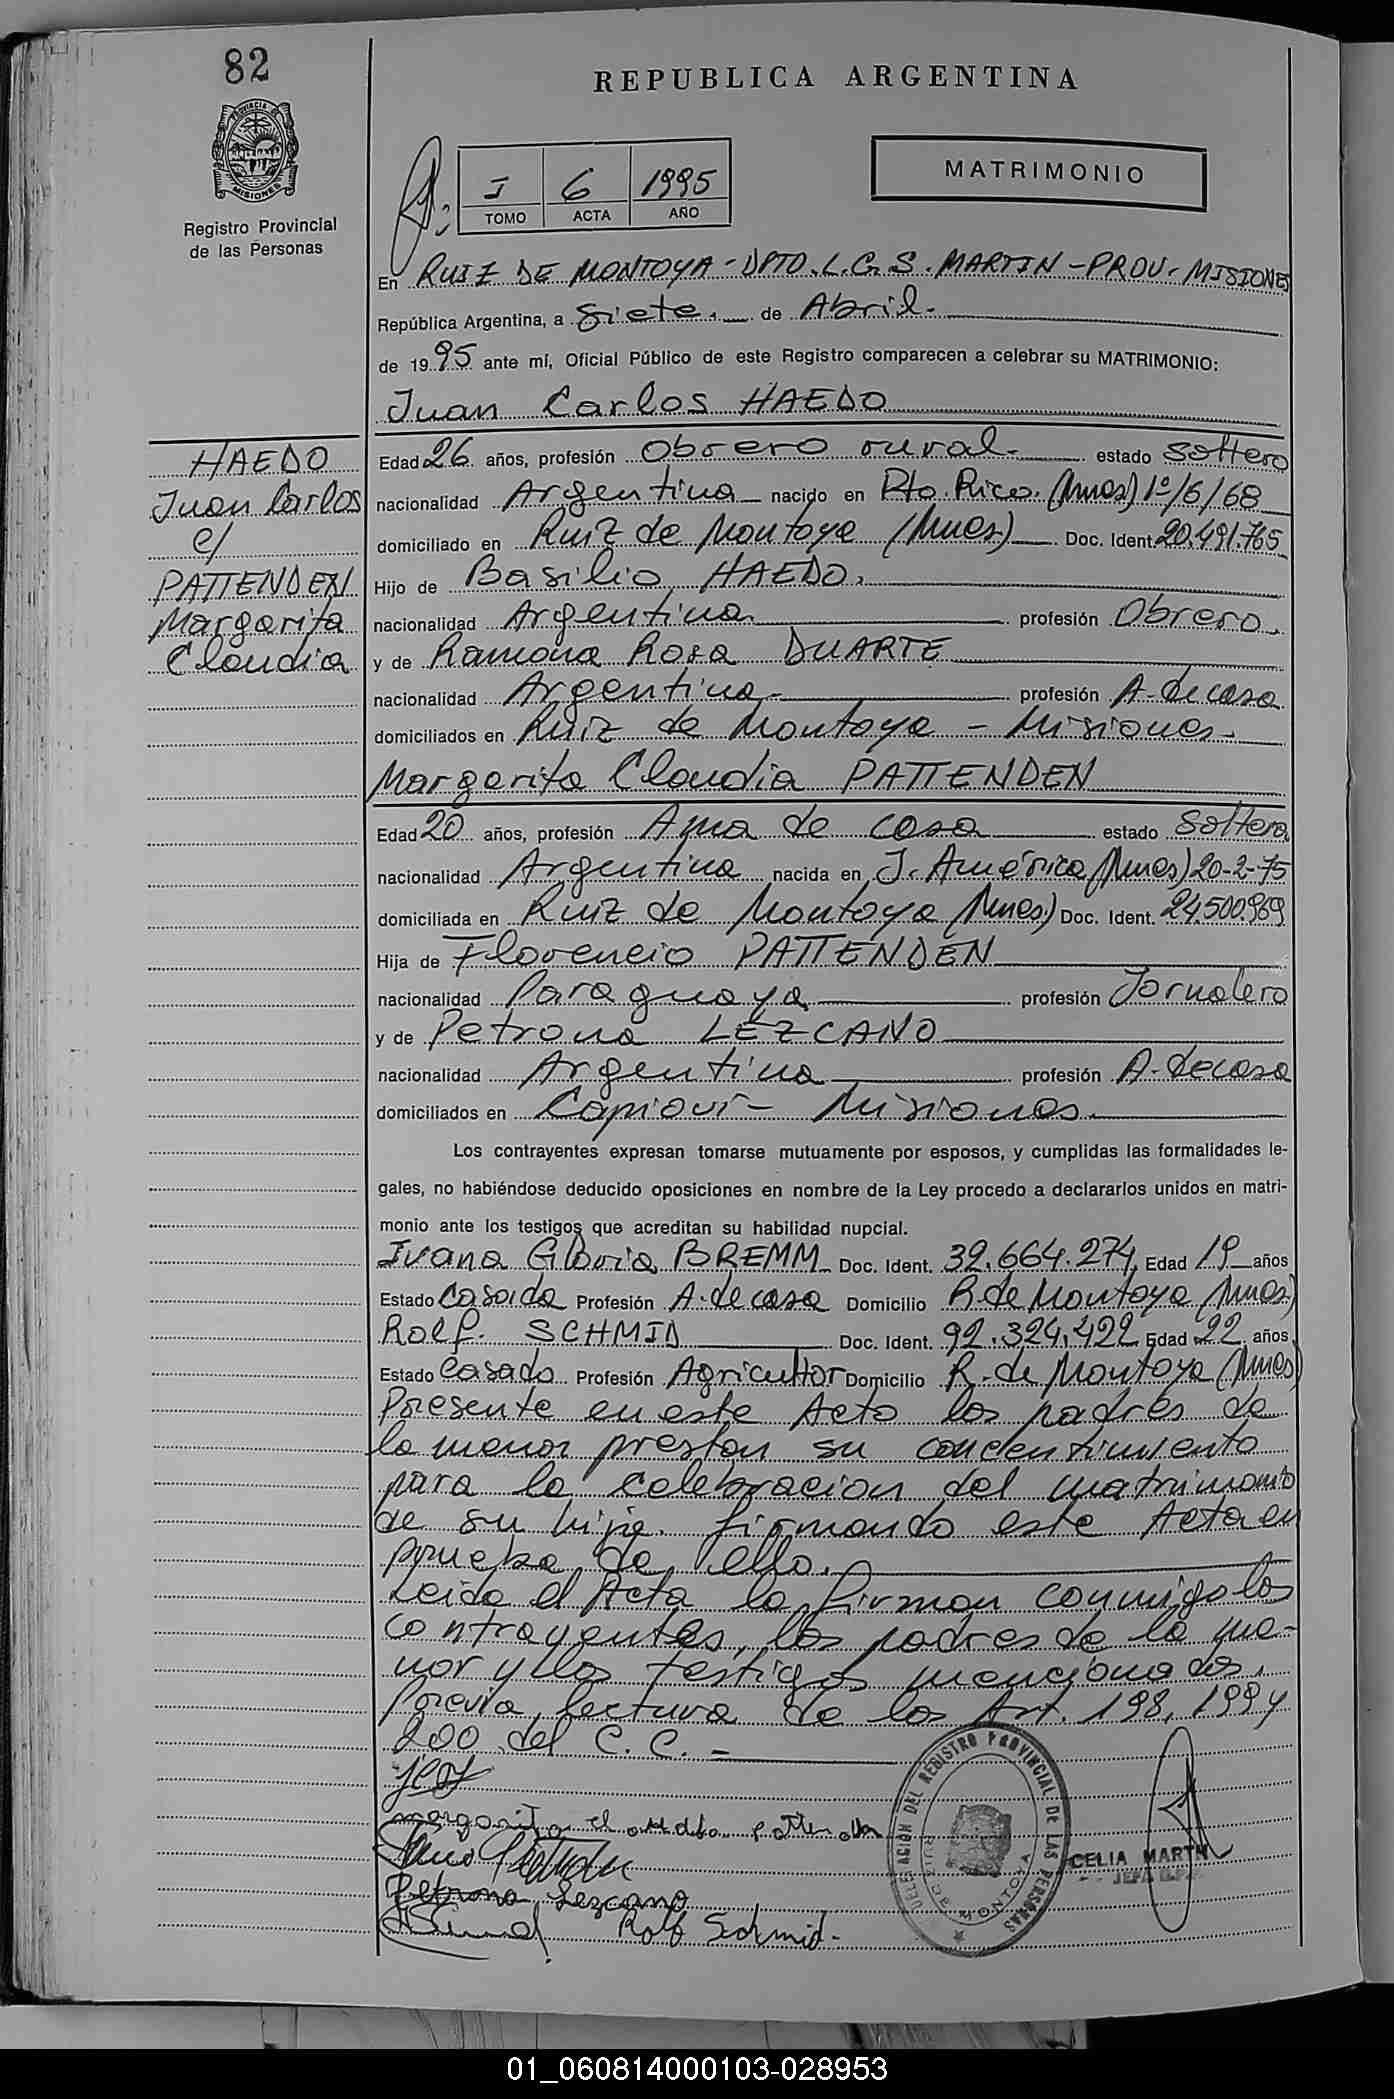 82
REPUBLICA ARGENTINA
PROVINCIA DE
MISIONES
Registro Provincial
de las Personas
I 6 1995
TOMO ACTA AÑO
MATRIMONIO
En RUIZ DE MONTOYA - DPTO. L.G.S. MARTIN - PROV. MISIONES
República Argentina, a Siete. de Abril.
de 1995 ante mí, Oficial Público de este Registro comparecen a celebrar su MATRIMONIO:
Juan Carlos HAEDO
HAEDO
Juan Carlos
c/
PATTENDEN
Margarita
Claudia
Edad 26 años, profesión Obrero rural. estado Soltero
nacionalidad Argentina nacido en Pto. Rico. (Mnes) 1º/6/68
domiciliado en Ruiz de Montoya (Mnes.) Doc. Ident. 20.491.765
Hijo de Basilio HAEDO.
nacionalidad Argentina profesión Obrero.
y de Ramona Rosa DUARTE
nacionalidad Argentina profesión A. de casa
domiciliados en Ruiz de Montoya - Misiones.
Margarita Claudia PATTENDEN
Edad 20 años, profesión Ama de casa estado Soltera
nacionalidad Argentina nacida en J. América (Mnes) 20-2-75
domiciliada en Ruiz de Montoya (Mnes.) Doc. Ident. 24.500.969
Hija de Florencio PATTENDEN
nacionalidad Paraguaya profesión Jornalero
y de Petrona LEZCANO
nacionalidad Argentina profesión A. de casa
domiciliados en Capioví - Misiones.
Los contrayentes expresan tomarse mutuamente por esposos, y cumplidas las formalidades le-
gales, no habiéndose deducido oposiciones en nombre de la Ley procedo a declararlos unidos en matri-
monio ante los testigos que acreditan su habilidad nupcial.
Ivana Gloria BREMM Doc. Ident. 32.664.274 Edad 19 años
Estado Casada Profesión A. de casa Domicilio R. de Montoya (Mnes.)
Rolf. SCHMID Doc. Ident. 92.324.422 Edad 22 años
Estado Casado Profesión Agricultor Domicilio R. de Montoya (Mnes)
Presente en este Acto los padres de
la menor prestan su concentimiento
para la celebracion del matrimonio
de su hija. firmando este Acta en
prueba de ello.
Leida el Acta la firman conmigo los
contrayentes, los padres de la me-
nor y los testigos mencionados.
Previa lectura de los Art. 198, 199 y
200 del C. C. -
Petrona Lezcano
Rolf Schmid.
DELEGACIÓN DEL REGISTRO PROVINCIAL DE LAS PERSONAS
RUIZ DE MONTOYA
CELIA MARTN
01_060814000103-028953